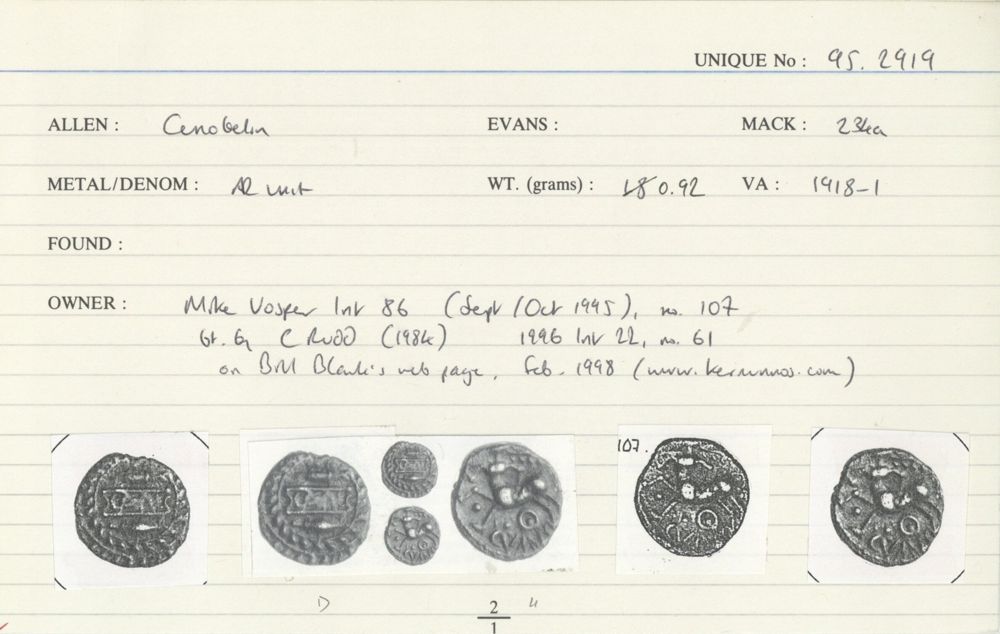 UNIQUE No : 95.2919
ALLEN : Cunobelin EVANS : MACK : 234a
METAL/DENOM : AR unit WT. (grams) : 0.92 VA : 1918-1
FOUND :
OWNER : Mike Vosper Inv 86 (Sept/Oct 1995), no. 107
bt. by C Rudd (1984) 1996 Inv 22, no. 61
on Bill Blank's web page, Feb. 1998 (www.kernunnos.com)
107.
D 4
2
1